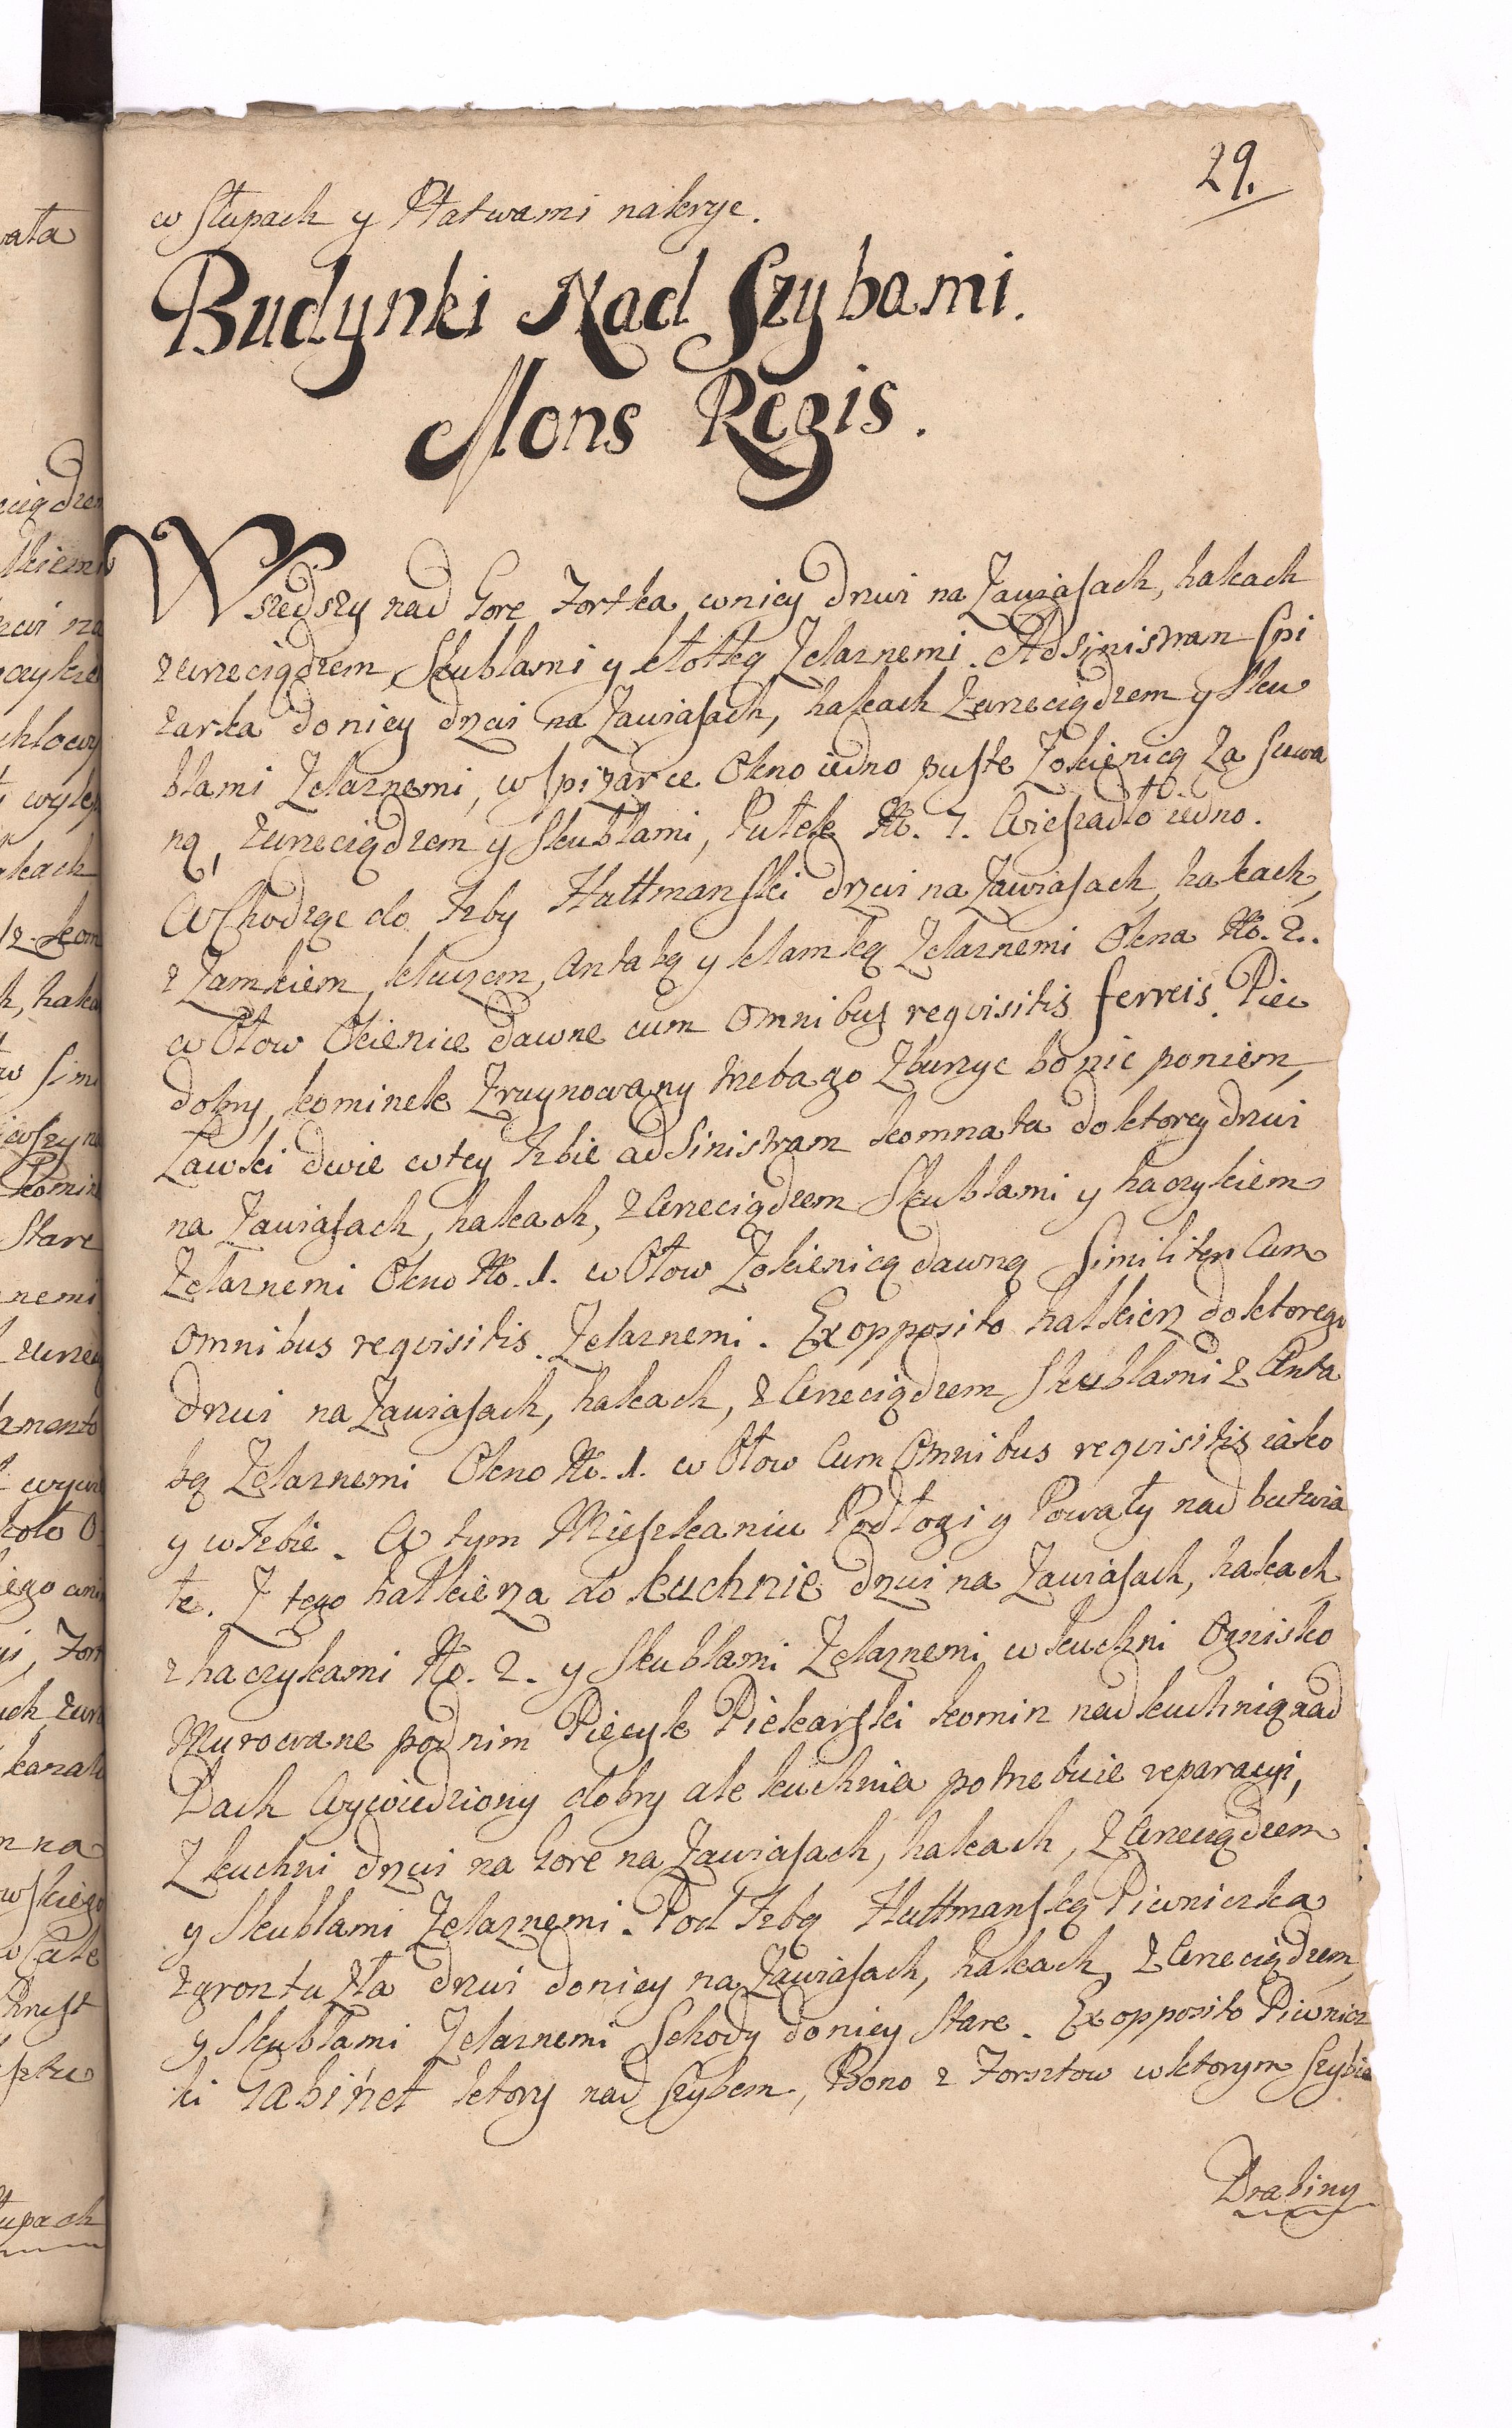 29.
w słupach y Płatwami nakryć.
Budynki Nad Szybami.
Mons Regis.
Wszedszy nad Gore Fortka, wnicy drzwi na Zawiasach, hakach
zwrzeciądzem, Skublami y kłotką Zelaznemi. Ad sinistram Spi
zarka do nicy drzwi na Zawiasach, hakach zwrzeciądzem y Sku
blami Zelaznemi, w spizarce Okno iedno puste Zokienicą Za suwa
ną, zwrzeciądzem y Skublami, Pułek No. 7. Wieszadło iedno.
Wchodząc do Izby Huttmanski drzwi na Zawiasach, hakach,
z Zamkiem, kluzem, Antabą y klamką Zelaznemi Okna No. 2.
w Ołow Okienice dawne cum omnibus requisitis ferreis. Piec
dobry, kominek Zruynowany trzeba go Zburzyc bo nic poniem,
Ławki dwie wtey Izbie ad Sinistram komnata do ktorey drzwi
na Zawiasach, hakach, z Wrzeciądzem Skublami y haczykiem
Zelaznemi Okno No. 1. w Ołow Zokienicą dawną Similiter Cum
omnibus requisitis Zelaznemi. Ex opposito halkierz do ktorego
drzwi na Zawiasach, hakach, z Wrzeciądzem Skublami z Anta
bą Zelaznemi Okno No. 1. w Ołow Cum Omnibus requisitis iako
y w Izbie. W tym Mieszkaniu Podłogi y Powały nad butwia
łe. Z tego halkierza do kuchnie drzwi na Zawiasach, hakach
z haczykami No. 2. y Skublami Zelaznemi w kuchni Ognisko
Murowane pod nim Piecyk Piekarski komin nad kuchnią nad
Dach Wywiedziony dobry ale kuchnia potrzebuie reparacyi,
Z kuchni drzwi na Gore na Zawiasach, hakach, z Wrzeciądzem
y Skublami Zelaznemi. Pod Izbą Huttmanską Piwniczka
z gruntu zła drzwi donicy na Zawiasach, hakach, z Wrzeciądzem
y Skublami Zelaznemi Schody donicy Stare. Ex opposito Piwnicz
ki Gabinet ktory nad Szybem, Bono z Forsztow w ktorym Szybie
Drabiny